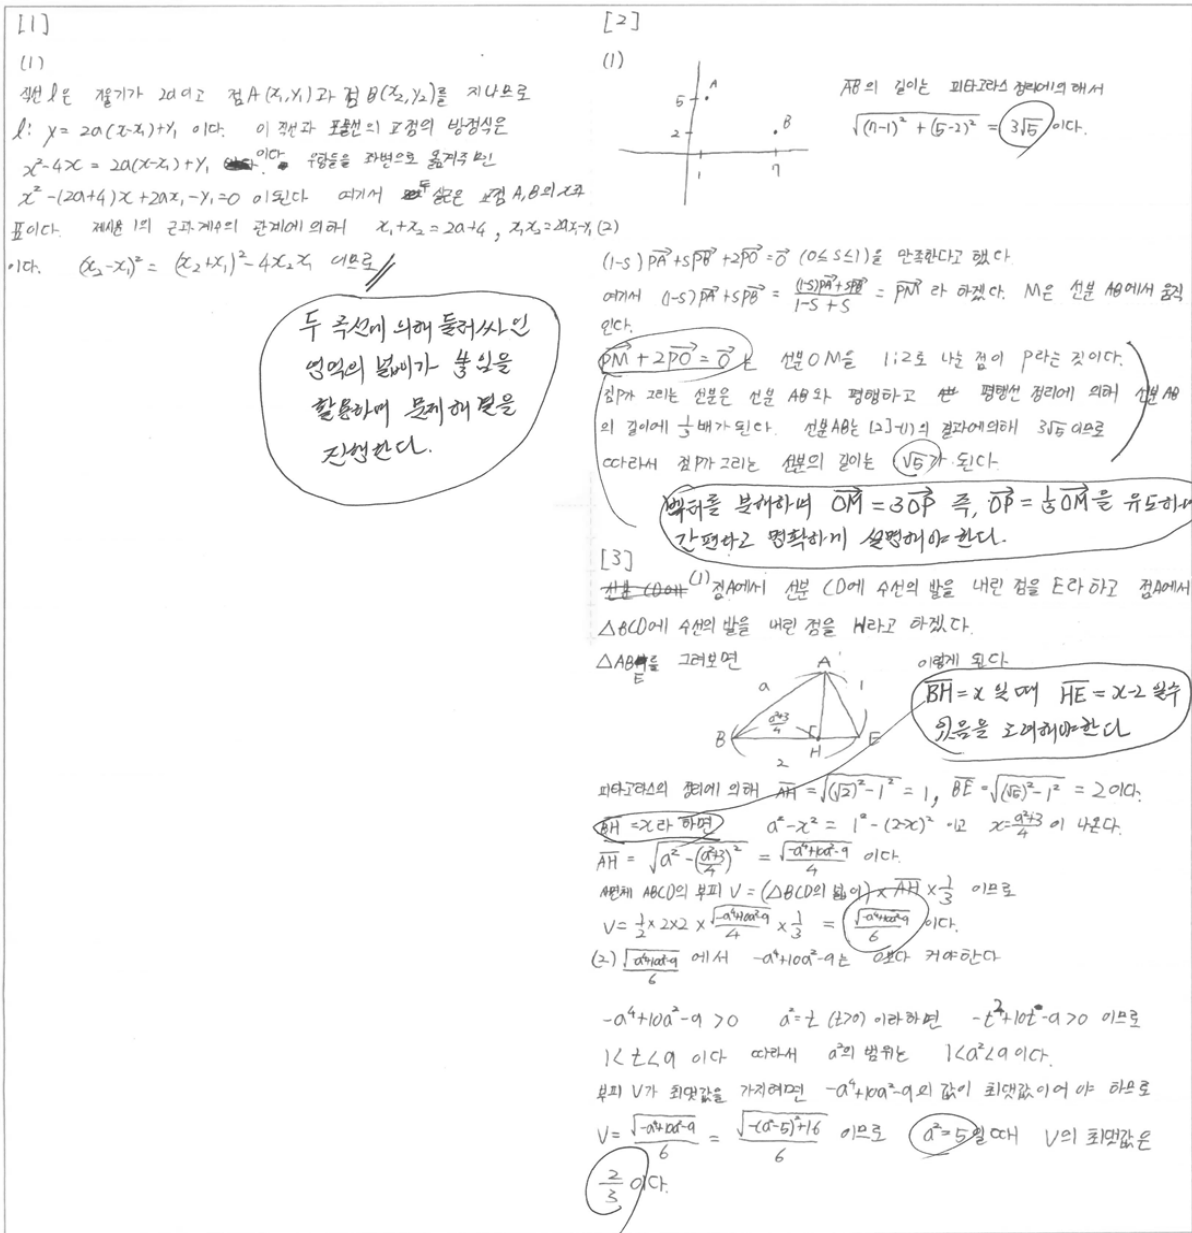 [1]
(1)
직선 l은 기울기가 2a이고 점 A(x₁,y₁)과 점 B(x₂,y₂)를 지나므로
l: y = 2a(x-x₁)+y₁ 이다. 이 직선과 포물선의 교점의 방정식은
x²-4x = 2a(x-x₁)+y₁ 이다. 우항들을 좌변으로 옮겨주면
x²-(2a+4)x+2ax₁-y₁=0 이 된다 여기서 두 실근은 교점 A,B의 x좌
표이다. 제시문 1의 근과 계수의 관계에 의해 x₁+x₂=2a+4, x₁x₂=2ax₁-y₁
이다. (x₂-x₁)² = (x₂+x₁)²-4x₂x₁ 이므로
두 곡선에 의해 둘러싸인
영역의 넓이가 붙임을
활용하여 문제해결을
진행한다.
[2]
(1)
A
5
B
2
1
7
AB의 길이는 피타고라스 정리에 의해서
√((7-1)² + (5-2)²) = 3√5 이다.
(2)
(1-s)PA+sPB+2PO=0 (0≤s≤1)을 만족한다고 했다
여기서 (1-s)PA+sPB = ((1-s)PA+sPB)/(1-s+s) = PM 라 하겠다. M은 선분 AB에서 움직
인다.
PM+2PO=0 는 선분OM을 1:2로 나눈 점이 P라는 것이다.
점P가 그리는 선분은 선분 AB와 평행하고 평행선 정리에 의해 선분AB
의 길이에 1/3배가 된다. 선분AB는 [2]-(1)의 결과에 의해 3√5 이므로
따라서 점P가 그리는 선분의 길이는 √5가 된다.
벡터를 분해하며 OM=3OP 즉, OP=1/3OM을 유도하여
간편하고 명확하게 설명해야 한다.
[3]
(1) 점A에서 선분 CD에 수선의 발을 내린 점을 E라 하고 점A에서
△BCD에 수선의 발을 내린 점을 H라고 하겠다.
△ABE를 그려보면 이렇게 된다.
A
a
1
(a²+3)/4
B
H
E
2
BH=x 일 때 HE=x-2 일수
있음을 고려해야한다
피타고라스의 정리에 의해 AH=√((√2)²-1²) = 1, BE=√((√5)²-1²) = 2이다.
BH=x라 하면 a²-x² = 1²-(2-x)² 이고 x=(a²+3)/4 이 나온다.
AH = √(a²-((a²+3)/4)²) = √(-a⁴+10a²-9)/4 이다.
사면체 ABCD의 부피 V = (△BCD의 넓이)×AH×1/3 이므로
V= 1/2×2×2×√(-a⁴+10a²-9)/4×1/3 = √(-a⁴+10a²-9)/6 이다.
(2) √(-a⁴+10a²-9)/6 에서 -a⁴+10a²-9는 0보다 커야한다
-a⁴+10a²-9 >0 a²=t (t>0) 이라하면 -t²+10t-9>0 이므로
1<t<9 이다 따라서 a²의 범위는 1<a²<9 이다.
부피 V가 최댓값을 가지려면 -a⁴+10a²-9의 값이 최댓값이어야 하므로
V= √(-a⁴+10a²-9)/6 = √(-(a²-5)²+16)/6 이므로 a²=5일때 V의 최댓값은
2/3 이다.